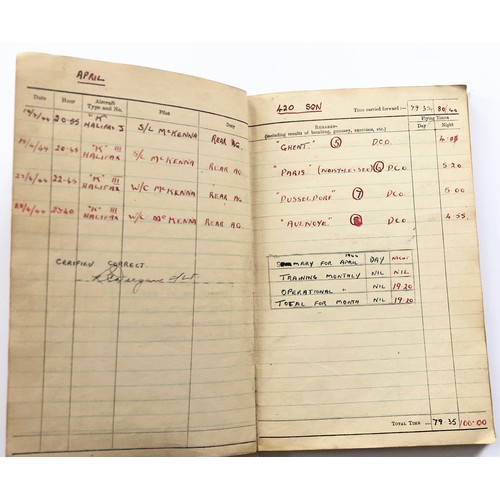 APRIL
Date Hour Aircraft Type and No. Pilot Duty
20.55 "K" HALIFAX 3 S/L McKENNA REAR AG.
20.45 "K" III HALIFAX S/L McKENNA REAR AG.
22/4/44 22.45 "K" III HALIFAX W/C McKENNA REAR AG.
"K" III HALIFAX W/C McKENNA REAR AG.
CERIFIED CORRECT.
420 SQN Time carried forward :— 79.35 80/40
REMARKS
(including results of bombing, gunnery, exercises, etc.)
Flying Times
Day Night
"GHENT." 5 D.C.O.
"PARIS." (NOISY-LE-SEC) 6 D.C.O. 5.20
"DUSSELDORF" 7 D.C.O. 5.00
"AULNOYE" 8 D.C.O. 4.55
SUMMARY FOR APRIL 1944 DAY NIGHT
TRAINING MONTHLY NIL NIL
OPERATIONAL " NIL 19.20
TOTAL FOR MONTH NIL 19.20
TOTAL TIME — 79.35 100.00